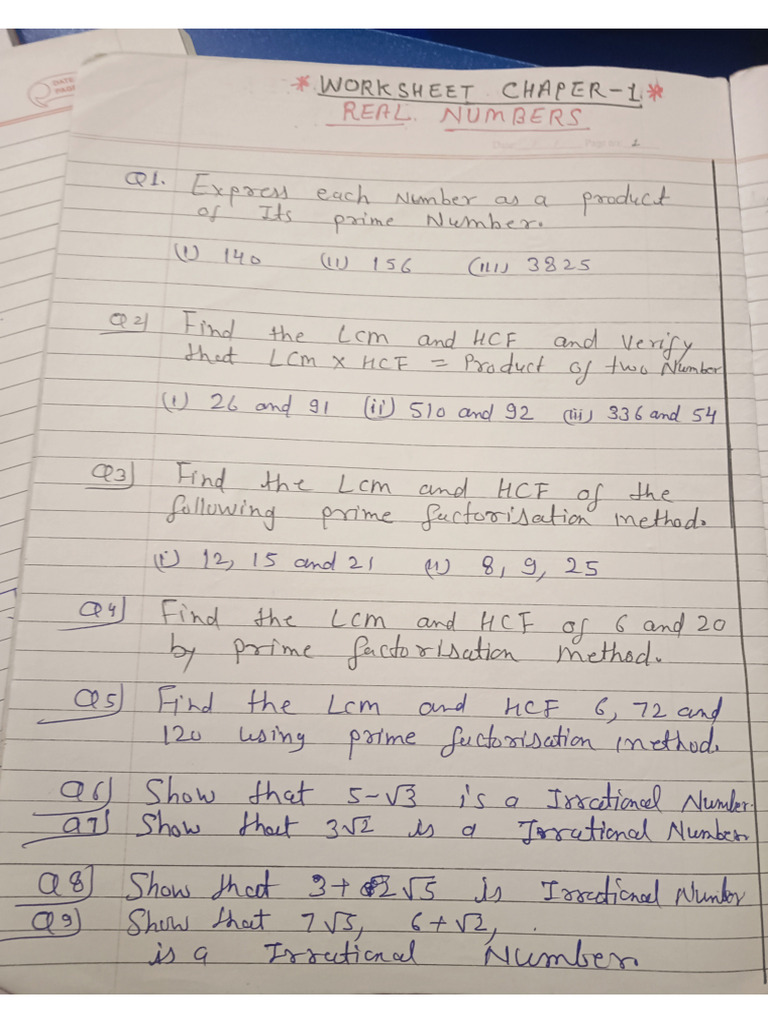 DATE
PAGE
* WORKSHEET CHAPER-1 *
REAL NUMBERS
Page no. 1
Q1. Express each Number as a product
of Its prime Number.
(i) 140 (ii) 156 (iii) 3825
Q2) Find the Lcm and HCF and verify
that LCM x HCF = Product of two Number
(i) 26 and 91 (ii) 510 and 92 (iii) 336 and 54
Q3) Find the Lcm and HCF of the
following prime factorisation method.
(i) 12, 15 and 21 (ii) 8, 9, 25
Q4) Find the LCM and HCF of 6 and 20
by prime factorisation method.
Q5) Find the Lcm and HCF 6, 72 and
120 using prime factorisation method.
Q6) Show that 5-√3 is a Irrational Number.
Q7) Show that 3√2 is a Irrational Number.
Q8) Show that 3+2√5 is Irrational Number
Q9) Show that 7√5, 6+√2,
is a Irrational Number.